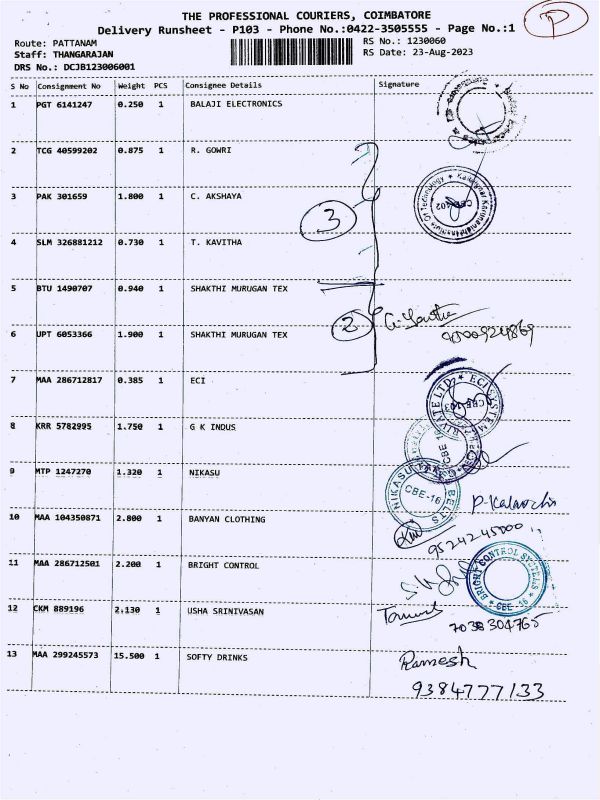 THE PROFESSIONAL COURIERS, COIMBATORE
P
Delivery Runsheet - P103 - Phone No.:0422-3505555 - Page No.:1
Route: PATTANAM RS No.: 1230060
Staff: THANGARAJAN RS Date: 23-Aug-2023
DRS No.: DCJB123006001
S No Consignment No Weight PCS Consignee Details Signature
1 PGT 6141247 0.250 1 BALAJI ELECTRONICS
2 TCG 40599202 0.875 1 R. GOWRI
3 PAK 301659 1.800 1 C. AKSHAYA
3
4 SLM 326881212 0.730 1 T. KAVITHA
5 BTU 1490707 0.940 1 SHAKTHI MURUGAN TEX
2
6 UPT 6053366 1.900 1 SHAKTHI MURUGAN TEX
7 MAA 286712817 0.385 1 ECI
8 KRR 5782995 1.750 1 G K INDUS
9 MTP 1247270 1.320 1 NIKASU
NIKASU BELTS CBE-16
10 MAA 104350871 2.800 1 BANYAN CLOTHING
9524245000
11 MAA 286712501 2.200 1 BRIGHT CONTROL
BRIGHT CONTROL SYSTEMS CBE-16
12 CKM 889196 2.130 1 USHA SRINIVASAN
7038304765
13 MAA 299245573 15.500 1 SOFTY DRINKS Ramesh
9384777133